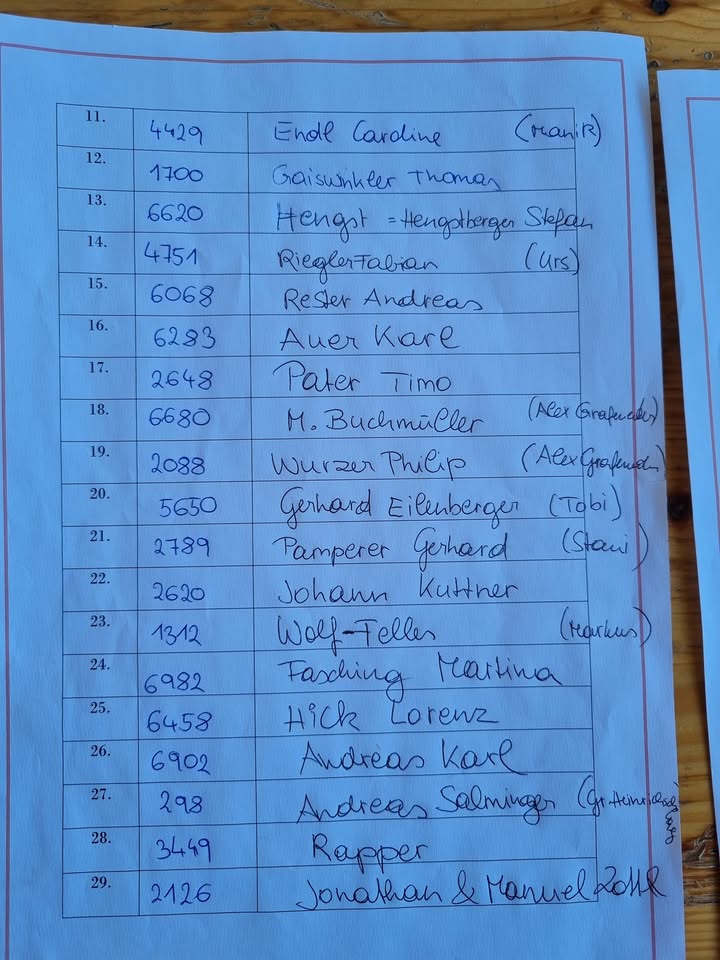 11. 4429 Endl Caroline (Mani R)
12. 1700 Gaiswinkler Thomas
13. 6620 Hengst = Hengstberger Stefan
14. 4751 Riegler Fabian (Urs)
15. 6068 Rester Andreas
16. 6283 Auer Karl
17. 2648 Pater Timo
18. 6680 M. Buchmüller (Alex
19. 2088 Wurzer Philip (Alex
20. 5650 Gerhard Eilenberger (Tobi)
21. 2789 Pamperer Gerhard
22. 2620 Johann Kuttner
23. 1312 Wolf-Feller (Markus)
24. 6982 Fasching Martina
25. 6458 Hick Lorenz
26. 6902 Andreas Karl
27. 298 Andreas Salminger (Gr.
28. 3449 Rapper
29. 2126 Jonathan & Manuel